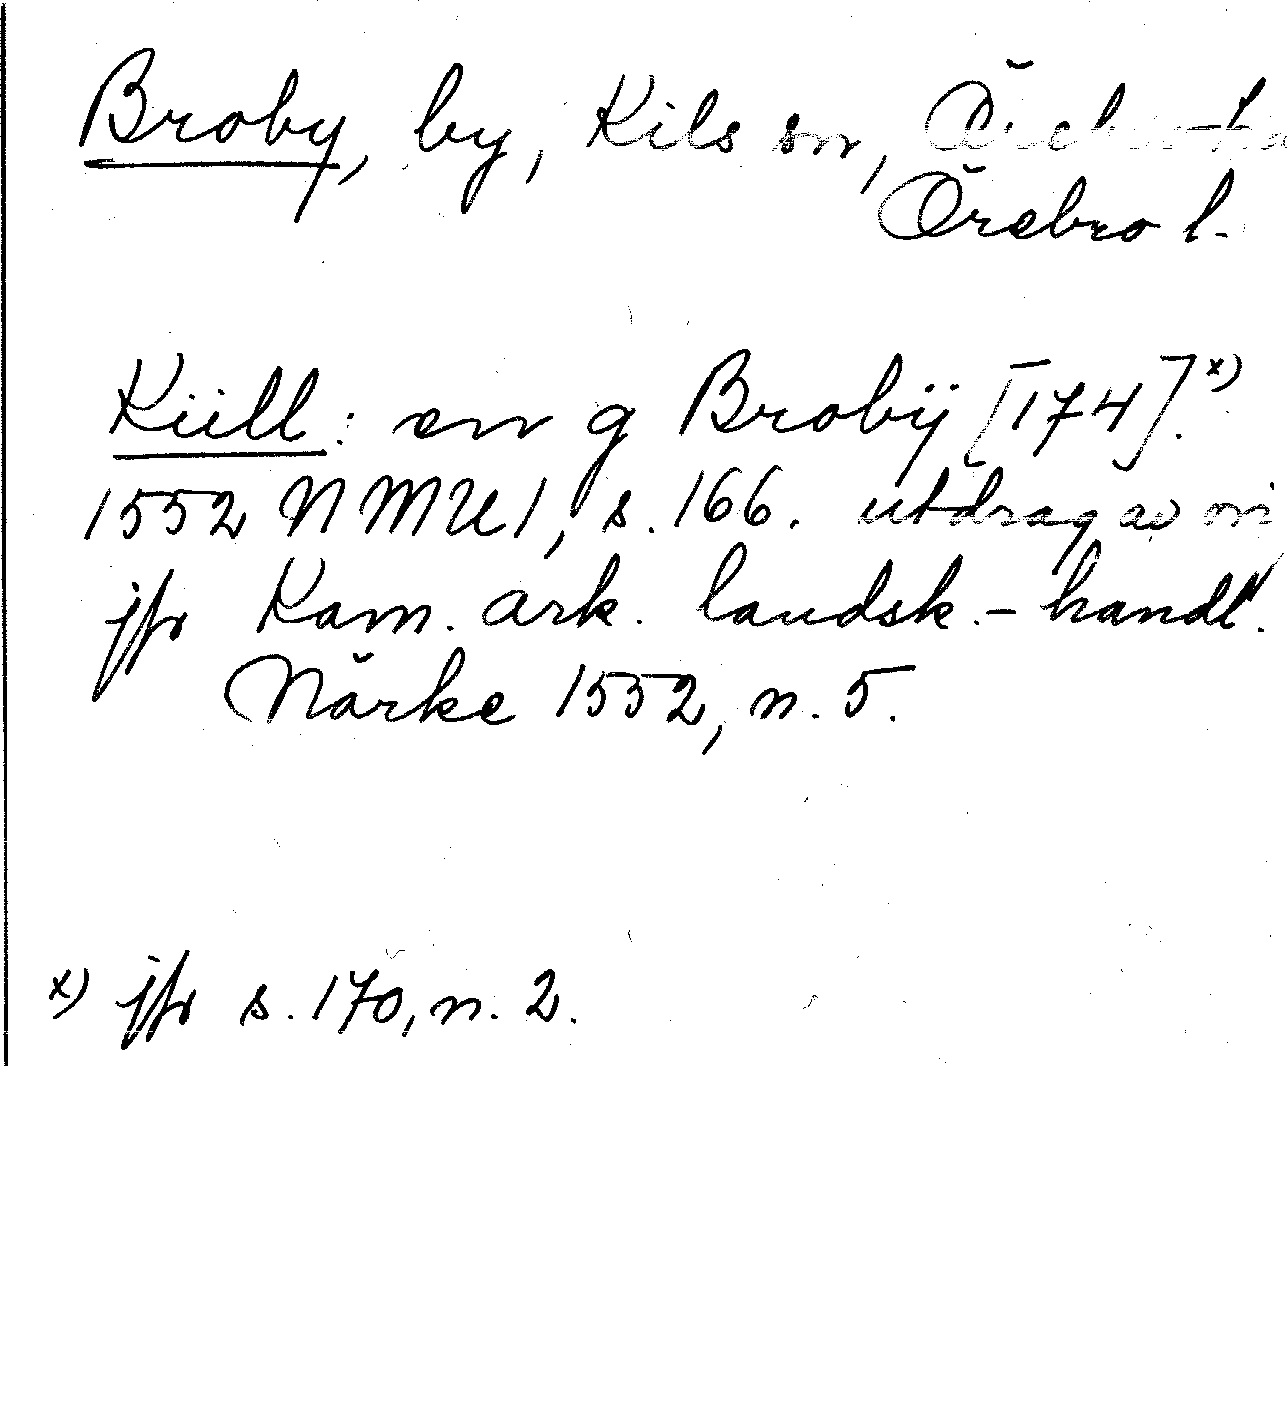 Broby, by, Kils sn,
Örebro l.
Kiill: en g Brobÿ [174].x)
1552 NMU1, s. 166. utdrag av
jfr Kam. ark. landsk.-handl.
Närke 1552, n. 5.
x) jfr s. 170, n. 2.